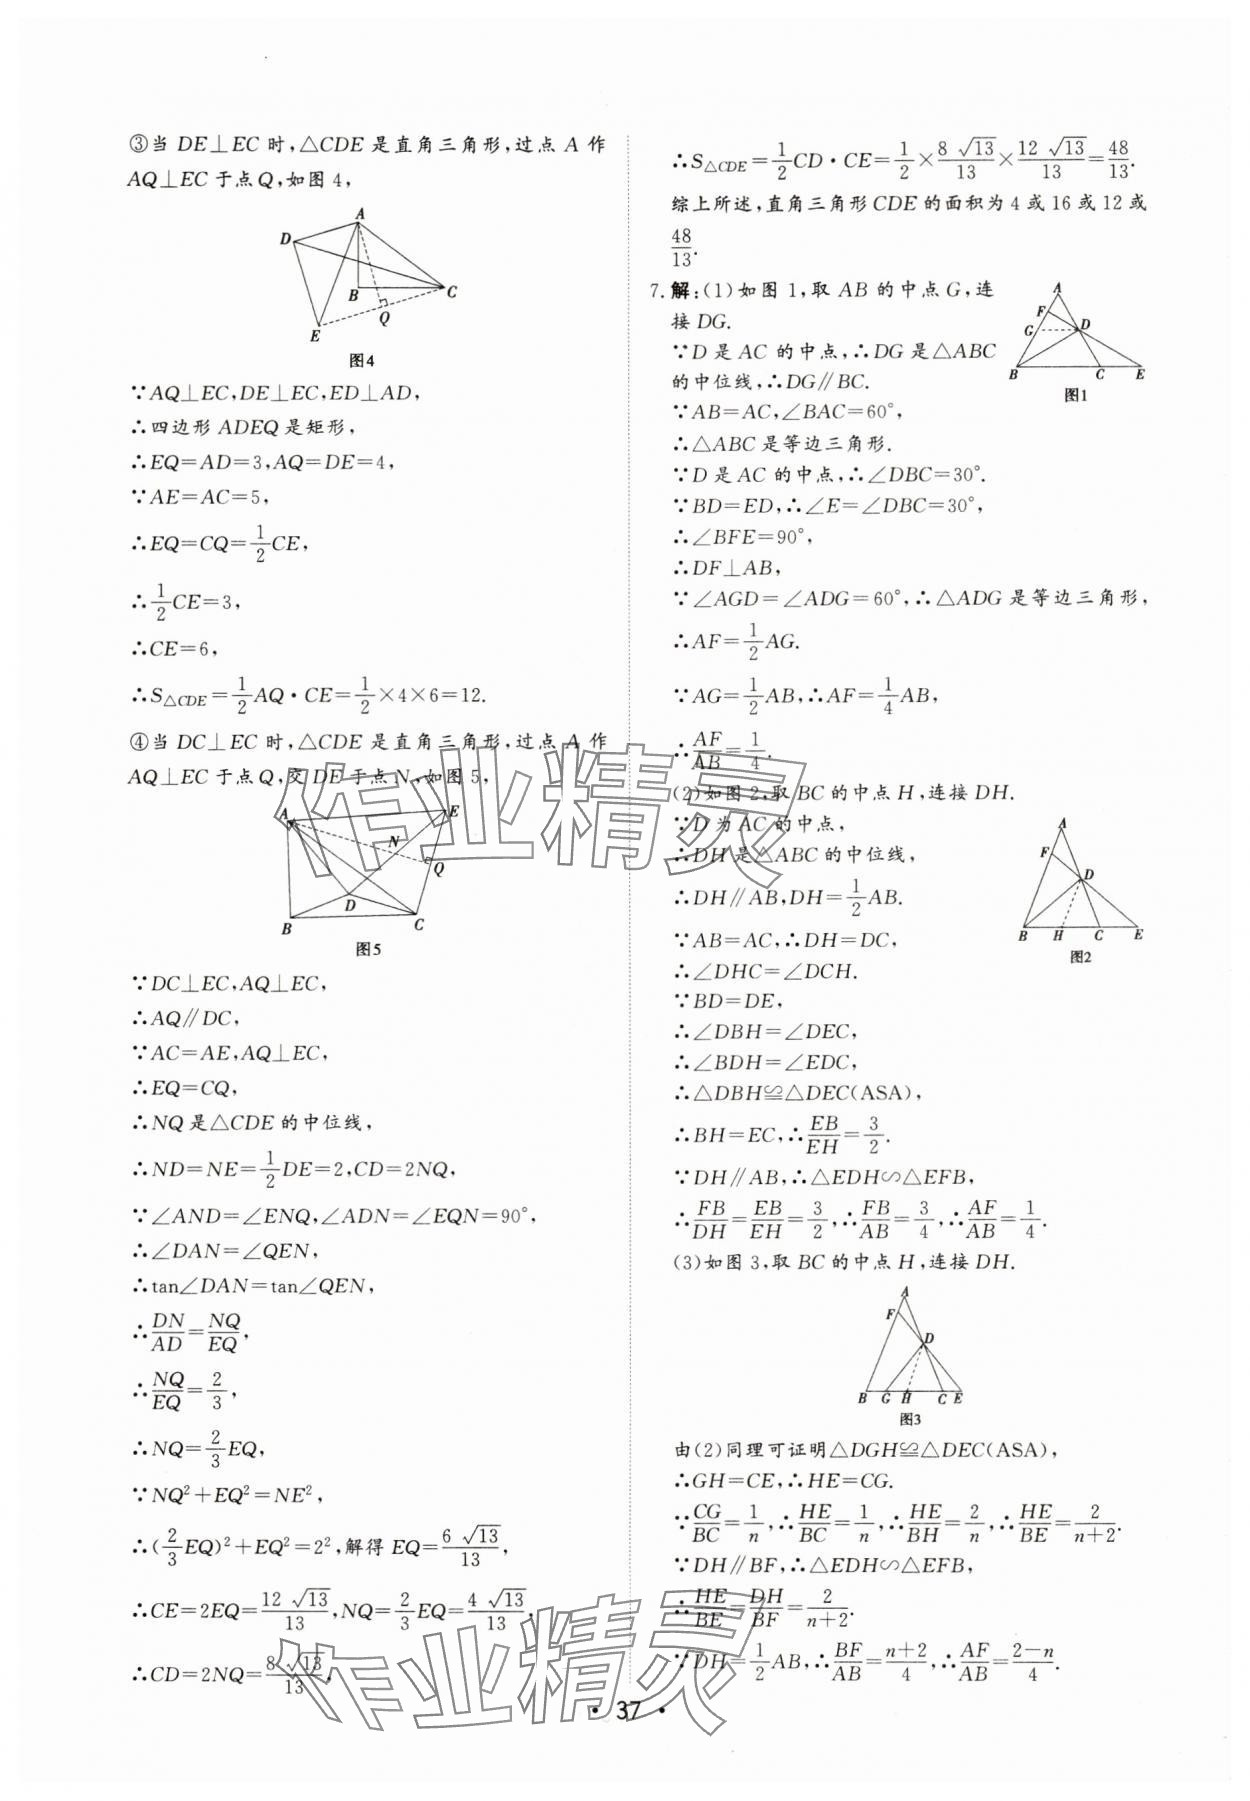 ③当 DE⊥EC 时,△CDE 是直角三角形,过点 A 作
AQ⊥EC 于点 Q,如图 4,
A
D
B
C
Q
E
图4
∵AQ⊥EC,DE⊥EC,ED⊥AD,
∴四边形 ADEQ 是矩形,
∴EQ=AD=3,AQ=DE=4,
∵AE=AC=5,
∴EQ=CQ=1/2CE,
∴1/2CE=3,
∴CE=6,
∴S△CDE=1/2AQ·CE=1/2×4×6=12.
④当 DC⊥EC 时,△CDE 是直角三角形,过点 A 作
AQ⊥EC 于点 Q,交 DE 于点 N,如图 5,
A
E
N
Q
D
B
C
图5
∵DC⊥EC,AQ⊥EC,
∴AQ∥DC,
∵AC=AE,AQ⊥EC,
∴EQ=CQ,
∴NQ 是△CDE 的中位线,
∴ND=NE=1/2DE=2,CD=2NQ,
∵∠AND=∠ENQ,∠ADN=∠EQN=90°,
∴∠DAN=∠QEN,
∴tan∠DAN=tan∠QEN,
∴DN/AD=NQ/EQ,
∴NQ/EQ=2/3,
∴NQ=2/3EQ,
∵NQ²+EQ²=NE²,
∴(2/3EQ)²+EQ²=2²,解得 EQ=6√13/13,
∴CE=2EQ=12√13/13,NQ=2/3EQ=4√13/13,
∴CD=2NQ=8√13/13,
∴S△CDE=1/2CD·CE=1/2×8√13/13×12√13/13=48/13.
综上所述,直角三角形 CDE 的面积为 4 或 16 或 12 或
48/13.
7.解:(1)如图 1,取 AB 的中点 G,连
接 DG.
∵D 是 AC 的中点,∴DG 是△ABC
的中位线,∴DG∥BC.
∵AB=AC,∠BAC=60°,
∴△ABC 是等边三角形.
∵D 是 AC 的中点,∴∠DBC=30°.
∵BD=ED,∴∠E=∠DBC=30°,
∴∠BFE=90°,
∴DF⊥AB,
∵∠AGD=∠ADG=60°,∴△ADG 是等边三角形,
∴AF=1/2AG.
∵AG=1/2AB,∴AF=1/4AB,
∴AF/AB=1/4.
A
F
G
D
B
C
E
图1
(2)如图 2,取 BC 的中点 H,连接 DH.
∵D 为 AC 的中点,
∴DH 是△ABC 的中位线,
∴DH∥AB,DH=1/2AB.
∵AB=AC,∴DH=DC,
∴∠DHC=∠DCH.
∵BD=DE,
∴∠DBH=∠DEC,
∴∠BDH=∠EDC,
∴△DBH≌△DEC(ASA),
∴BH=EC,∴EB/EH=3/2.
∵DH∥AB,∴△EDH∽△EFB,
∴FB/DH=EB/EH=3/2,∴FB/AB=3/4,∴AF/AB=1/4.
A
F
D
B
H
C
E
图2
(3)如图 3,取 BC 的中点 H,连接 DH.
A
F
D
B
G
H
C
E
图3
由(2)同理可证明△DGH≌△DEC(ASA),
∴GH=CE,∴HE=CG.
∵CG/BC=1/n,∴HE/BC=1/n,∴HE/BH=2/n,∴HE/BE=2/(n+2).
∵DH∥BF,∴△EDH∽△EFB,
∴HE/BE=DH/BF=2/(n+2).
∵DH=1/2AB,∴BF/AB=(n+2)/4,∴AF/AB=(2-n)/4.
作业精灵
作业精灵
• 37 •